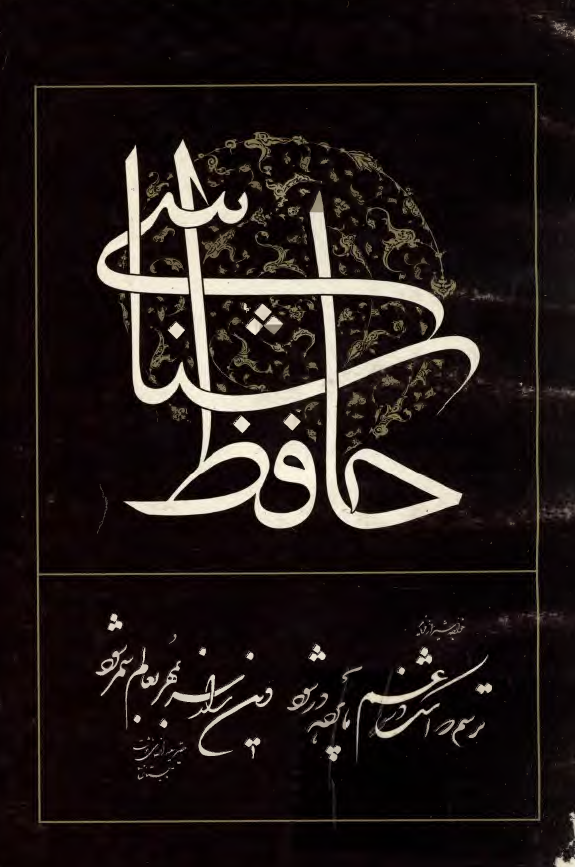 حافظ شناسی
ترسم که اشک در غم ما پرده در شود
وین راز سر به مهر به عالم سمر شود